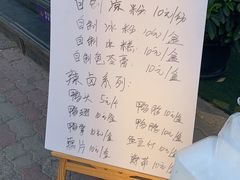 自制凉粉 10元/份
自制冰粉 10元/盒
自制冰糕 10元/盒
自制龟苓膏 10元/盒
辣卤系列:
鸭头 5元/个 鸭脖 10元/盒
鸭翅 10元/盒 鸭肠 10元/盒
鸭掌 10元/盒 鱼豆付 10元/盒
藕片 10元/盒